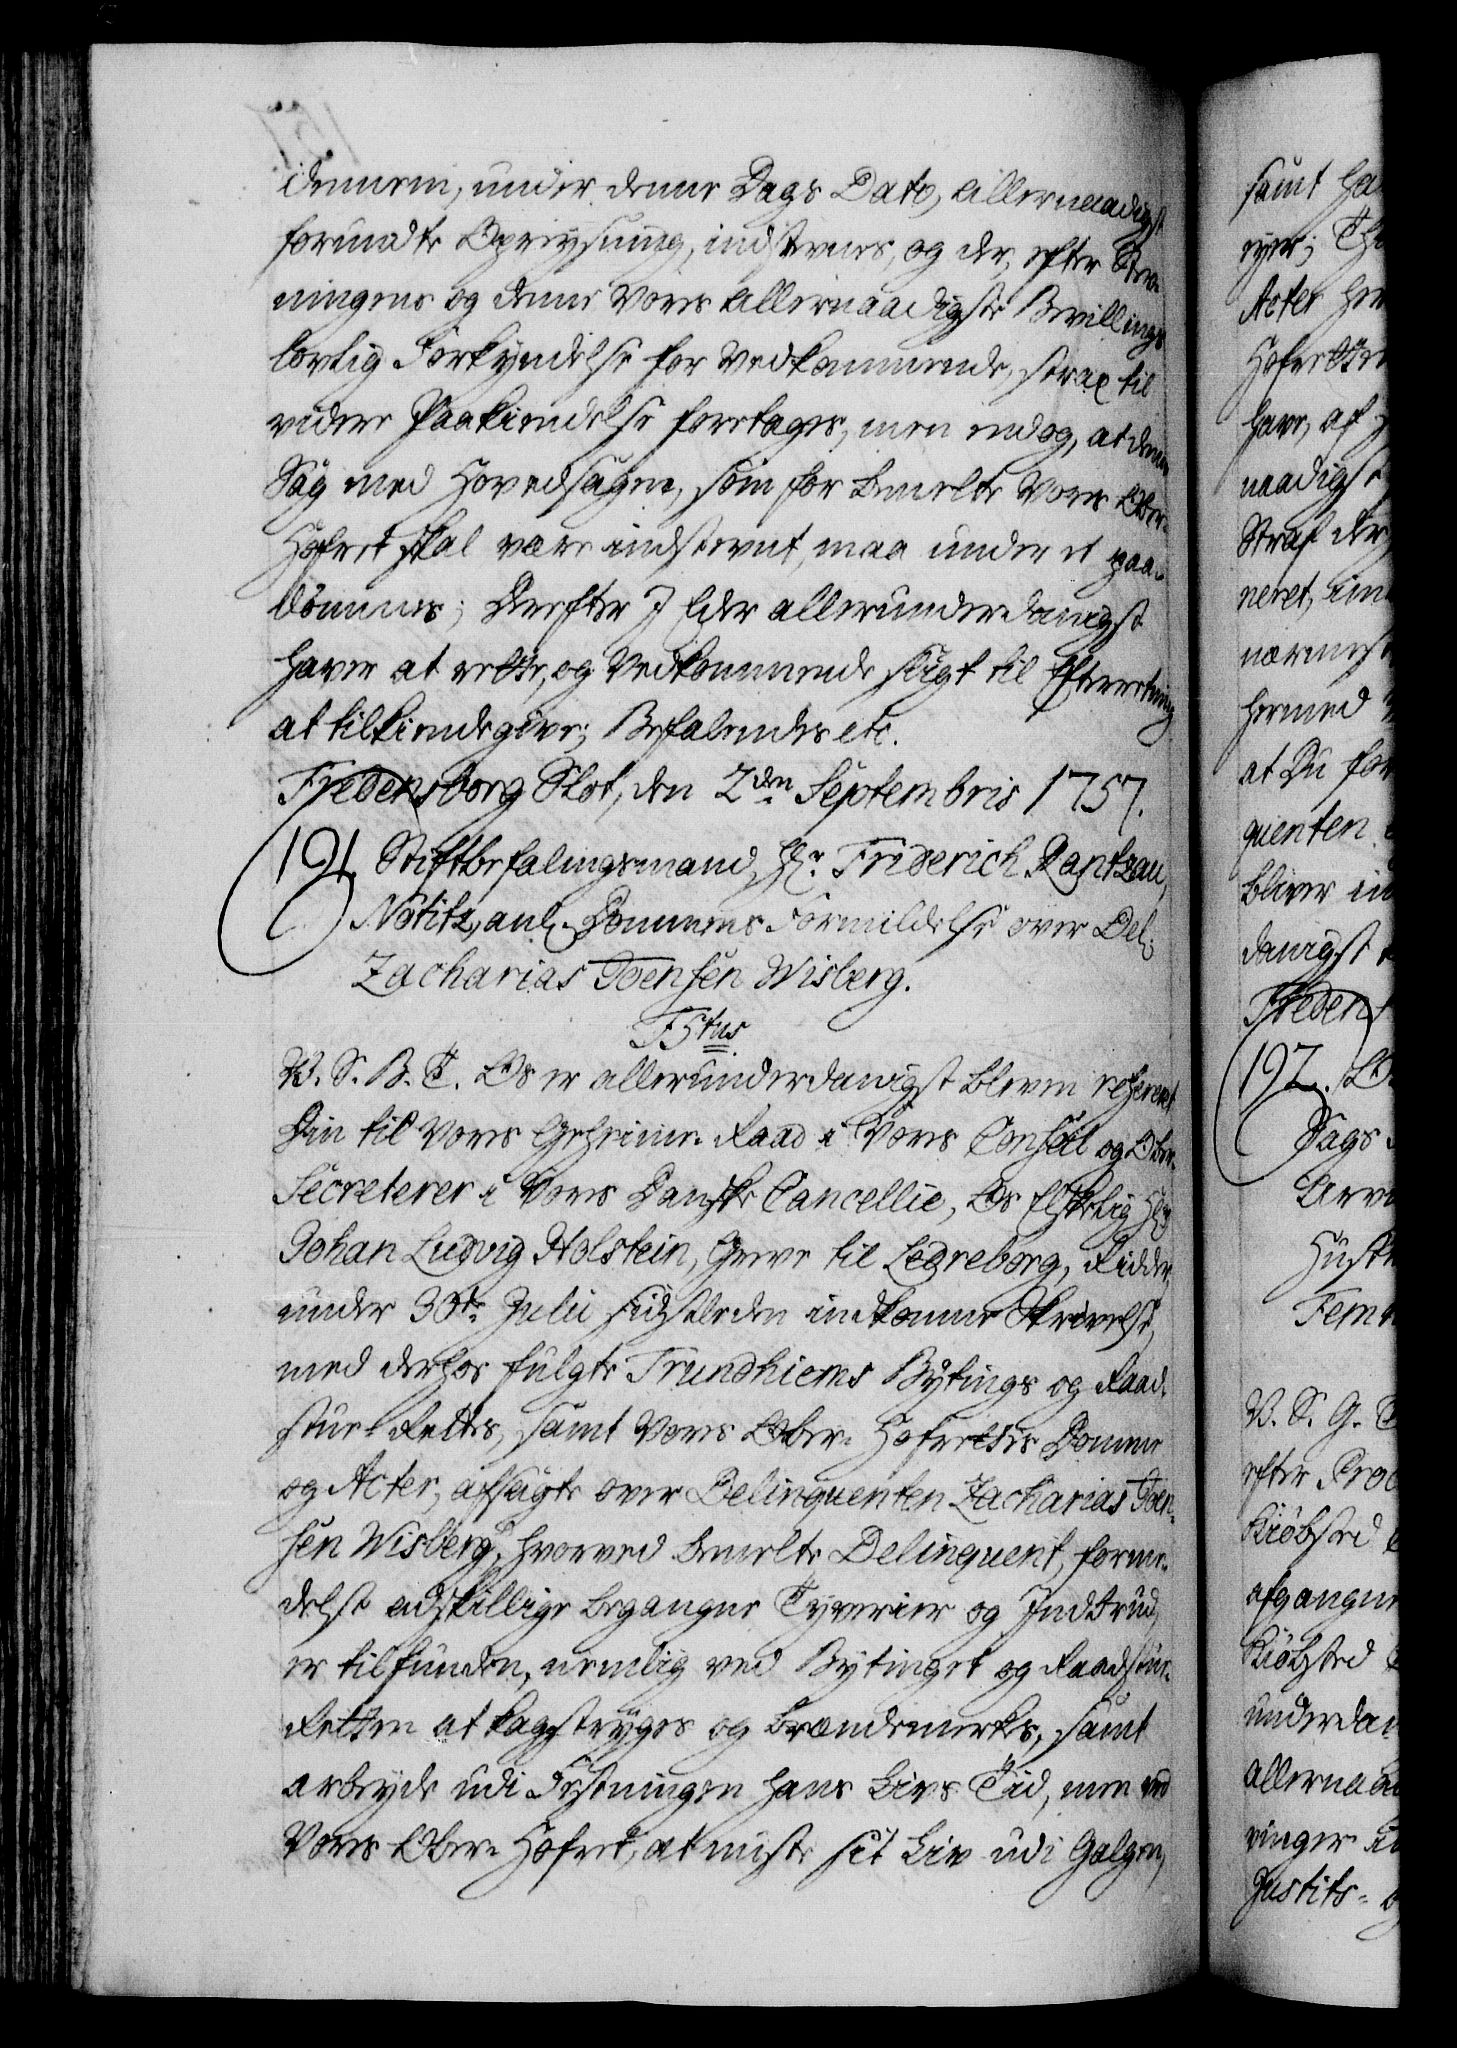 dennem, under denne Dags Dato, allernaadigst
forundte Opreysning, indstevnes, og der, efter Stev-
ningens og denne Vores allernaadigste Bevillings
lovlig Forkyndelse for Vedkommende, strax til
videre Paakiendelse foretages, men endog, at denne
Sag med Hovedsagen, som for bemelte Vores Ober-
Hofret skal være indstevnt, maa under et paa-
dømmes; Derefter I Eder allerunderdanigst
haver at rette, og Vedkommende sligt til Efterretning
at tilkiendegive; Befalendes etc.
Fredensborg Slot, den 2den Septembris 1757.
191. Stiftbefalingsmand, Hr. Friderich Rantzau,
Notitz, anl. Dommens Formildelse over Del:
Zacharias Joensen Wisberg.
F5tus
V. S. B. T. Os er allerunderdanigst bleven refereret
Din til Vores Geheime-Raad i Vores Conseil og Ober-
Secreterer i Vores Danske Cancellie, Os Elskelig Hr.
Johan Ludvig Holstein, Greve til Ledreborg, Ridder,
under 30te Julii sidstleden indkomne Skrivelse,
med derhos fulgte Trundhiems Bytings og Raad-
stue-Rettes, samt Vores Ober-Hofrettes Domme
og Acter, afsagte over Delinquenten Zacharias Joen-
sen Wisberg, hvorved bemelte Delinquent, forme-
delst adskillige begangne Tyverier og Indbrud,
er tilfunden, nemlig ved Bytinget og Raadstue-
Retten at kagstryges og brændemerkes, samt
arbeyde udi Fæstningen hans Livs Tid, men ved
Vores Ober-Hofret, at miste sit Liv udi Galgen,
samt
Acter
Hofretten
have, af
naadigst
Straf der
neret,
nærmest
hermed
at Du for
quenten
bliver
danigst
Fredens
192.
Dags
V. S. G. T.
efter
Kiøbsted
afgangne
Kiøbsted
underdan
allernaa
Justits-